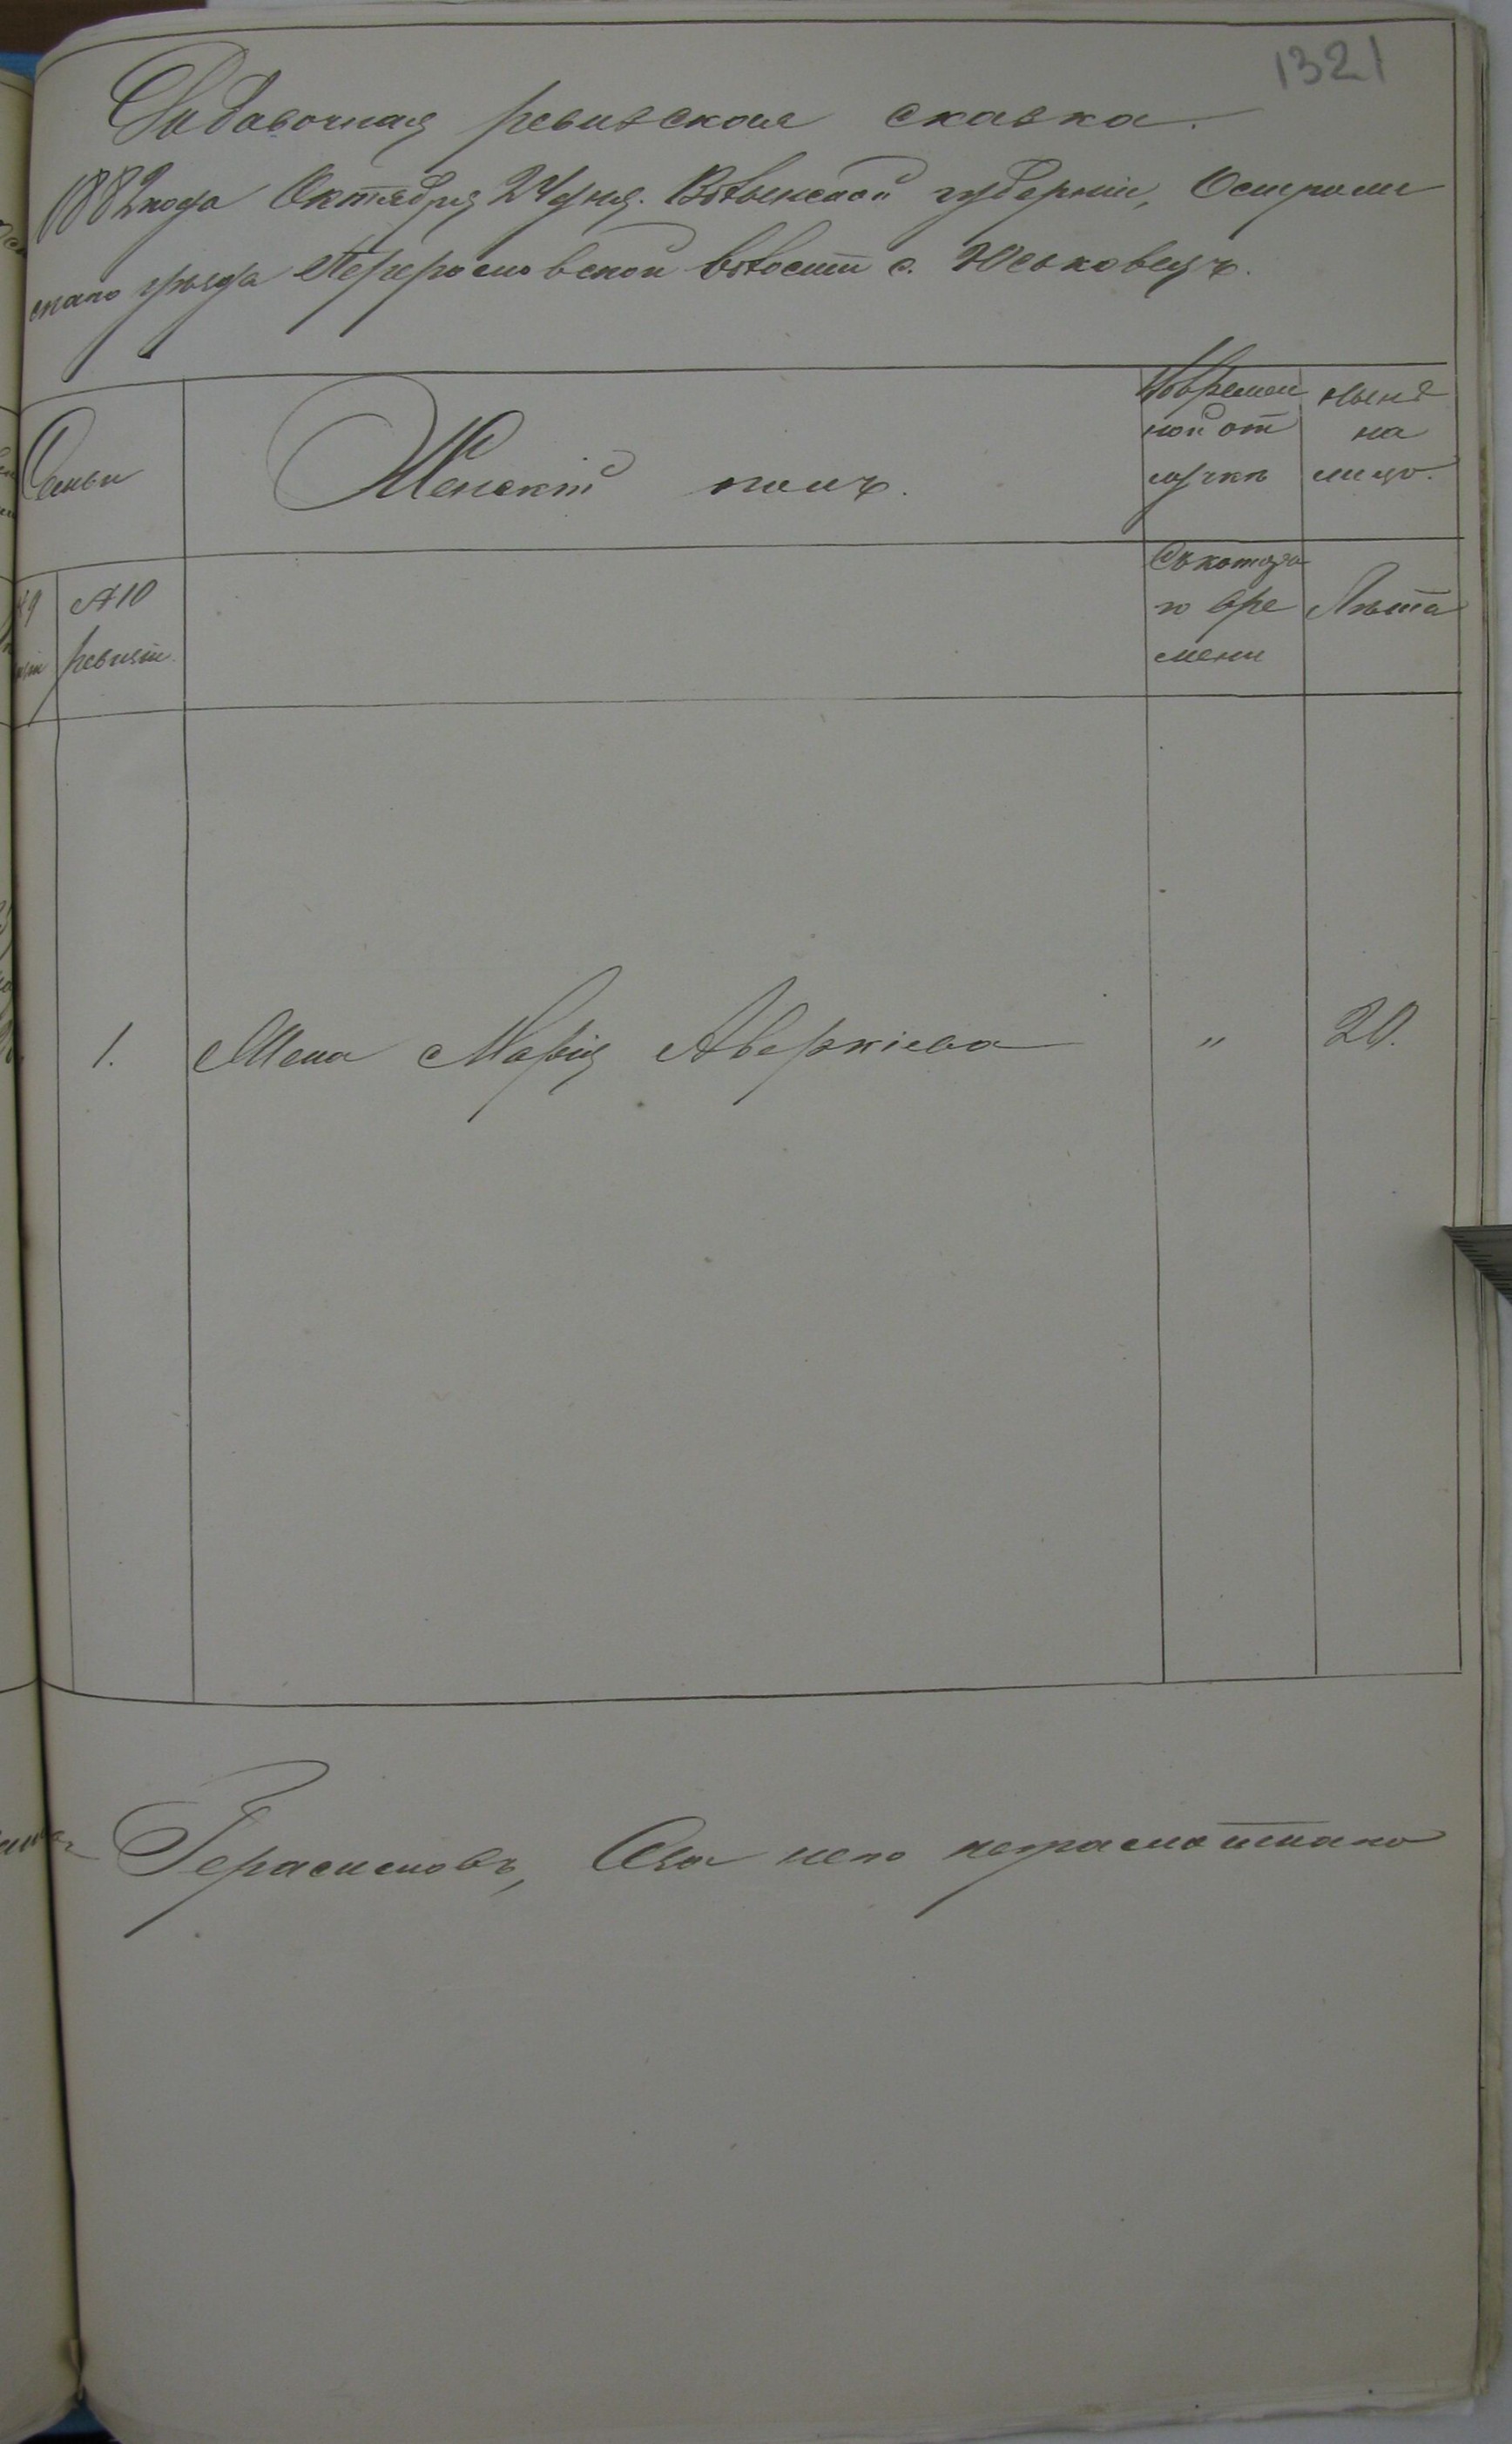 1321
Добавочная ревизская сказка.
1882 года Октября 24 дня. Волынской губерніи, Острож
скаго уѣзда Перерословской волости с. Юськовецъ.
Семьи
Женскій полъ.
Во времен
ной от
лучкѣ
Нынѣ
на
лицо.
№ 9
№ 10
ревизіи
Съ котора
го вре
мени
Лѣта
1. Жена Марія Аверкіева " 20.
Герасимовъ, а за него неграмотнаго